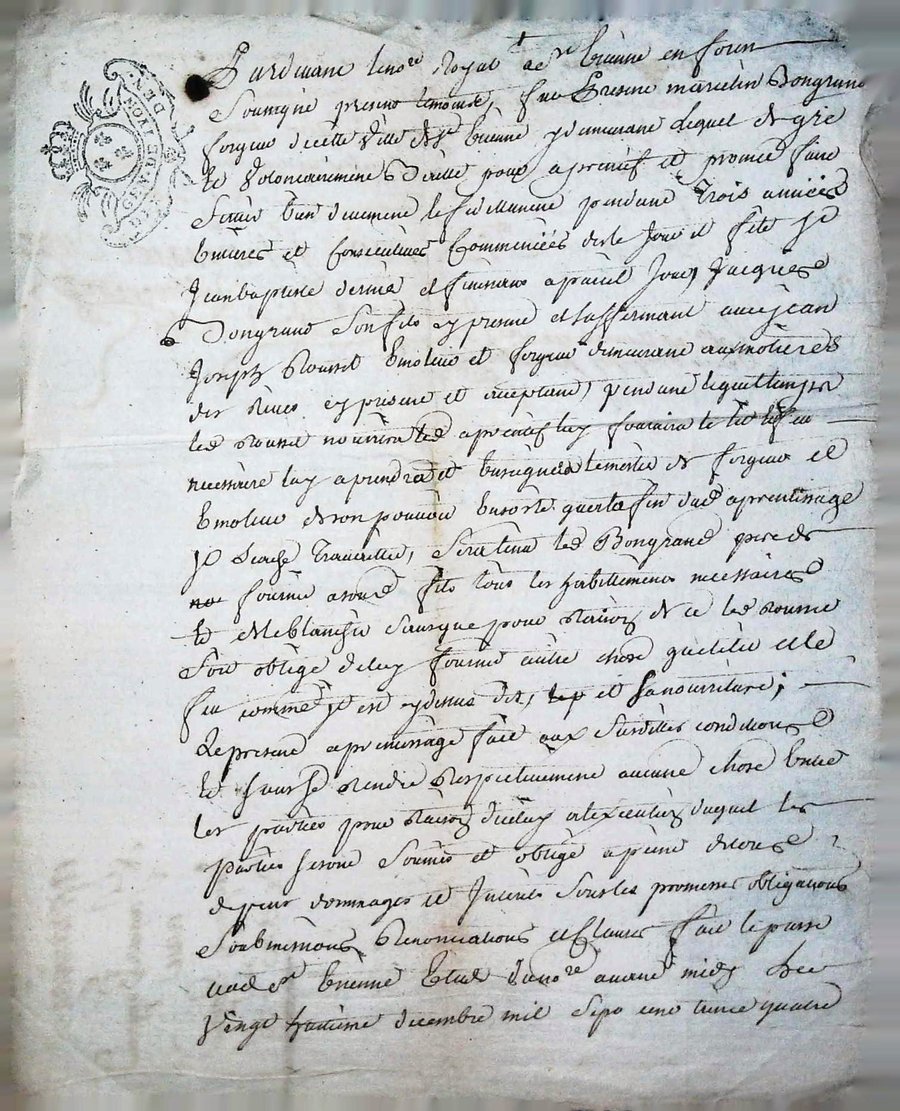 GNĀLITE DE LYON
Pardevant le no.re Royal a S.t Etienne en forets
Soussigné presens temoins, fut Present marcelin Bongrand
forgeur de cette ville de S.t Etienne y demeurant lequel de gré
et volontairement Baille pour aprentif et promet faire
Servir bien duement le fil de meme pendant Trois années
Entieres et Consecutives Commencées des le Jour et fete S.t
Jean baptiste dernier et finissant a pareil Jour, Jacques
Bongrand Son fils cy present et s'affermant avec Jean
Joseph Rousset Emoleur et forgeur demeurant aux molieres
des Rives cy present et acceptant, pendant lequel temps
led Rousset nourrira led aprentif luy fournira le lit le feu
necessaire luy aprendra et Enseignera le metier de forgeur et
Emoleur de son pouvoir Ensorte qu'a la fin dud aprentissage
Il Sache Travailler, Sera tenu led Bongrand pere de
fournir a sond fils tous les habillements necessaires
et de le blanchir Sans que pour Raison de ce led Rousset
Soit obligé de luy fournir autre chose que le lit et le
feu comme Il est cy dessus dit, et sa nourriture;
Le present aprentissage fait aux Susdites conditions
et sans Se rendre Respectivement aucune chose Entre
les parties pour Raison d'iceluy a l'Execution duquel les
parties seront Soumis et obligé a peine de tous
depens dommages et Interets Sous les promesses obligations
Soubmissions Renonciations et clauses fait et passé
aud S.t Etienne Etude dud no.re avant midy ce
vingt huitieme decembre mil Sept cent trente quatre